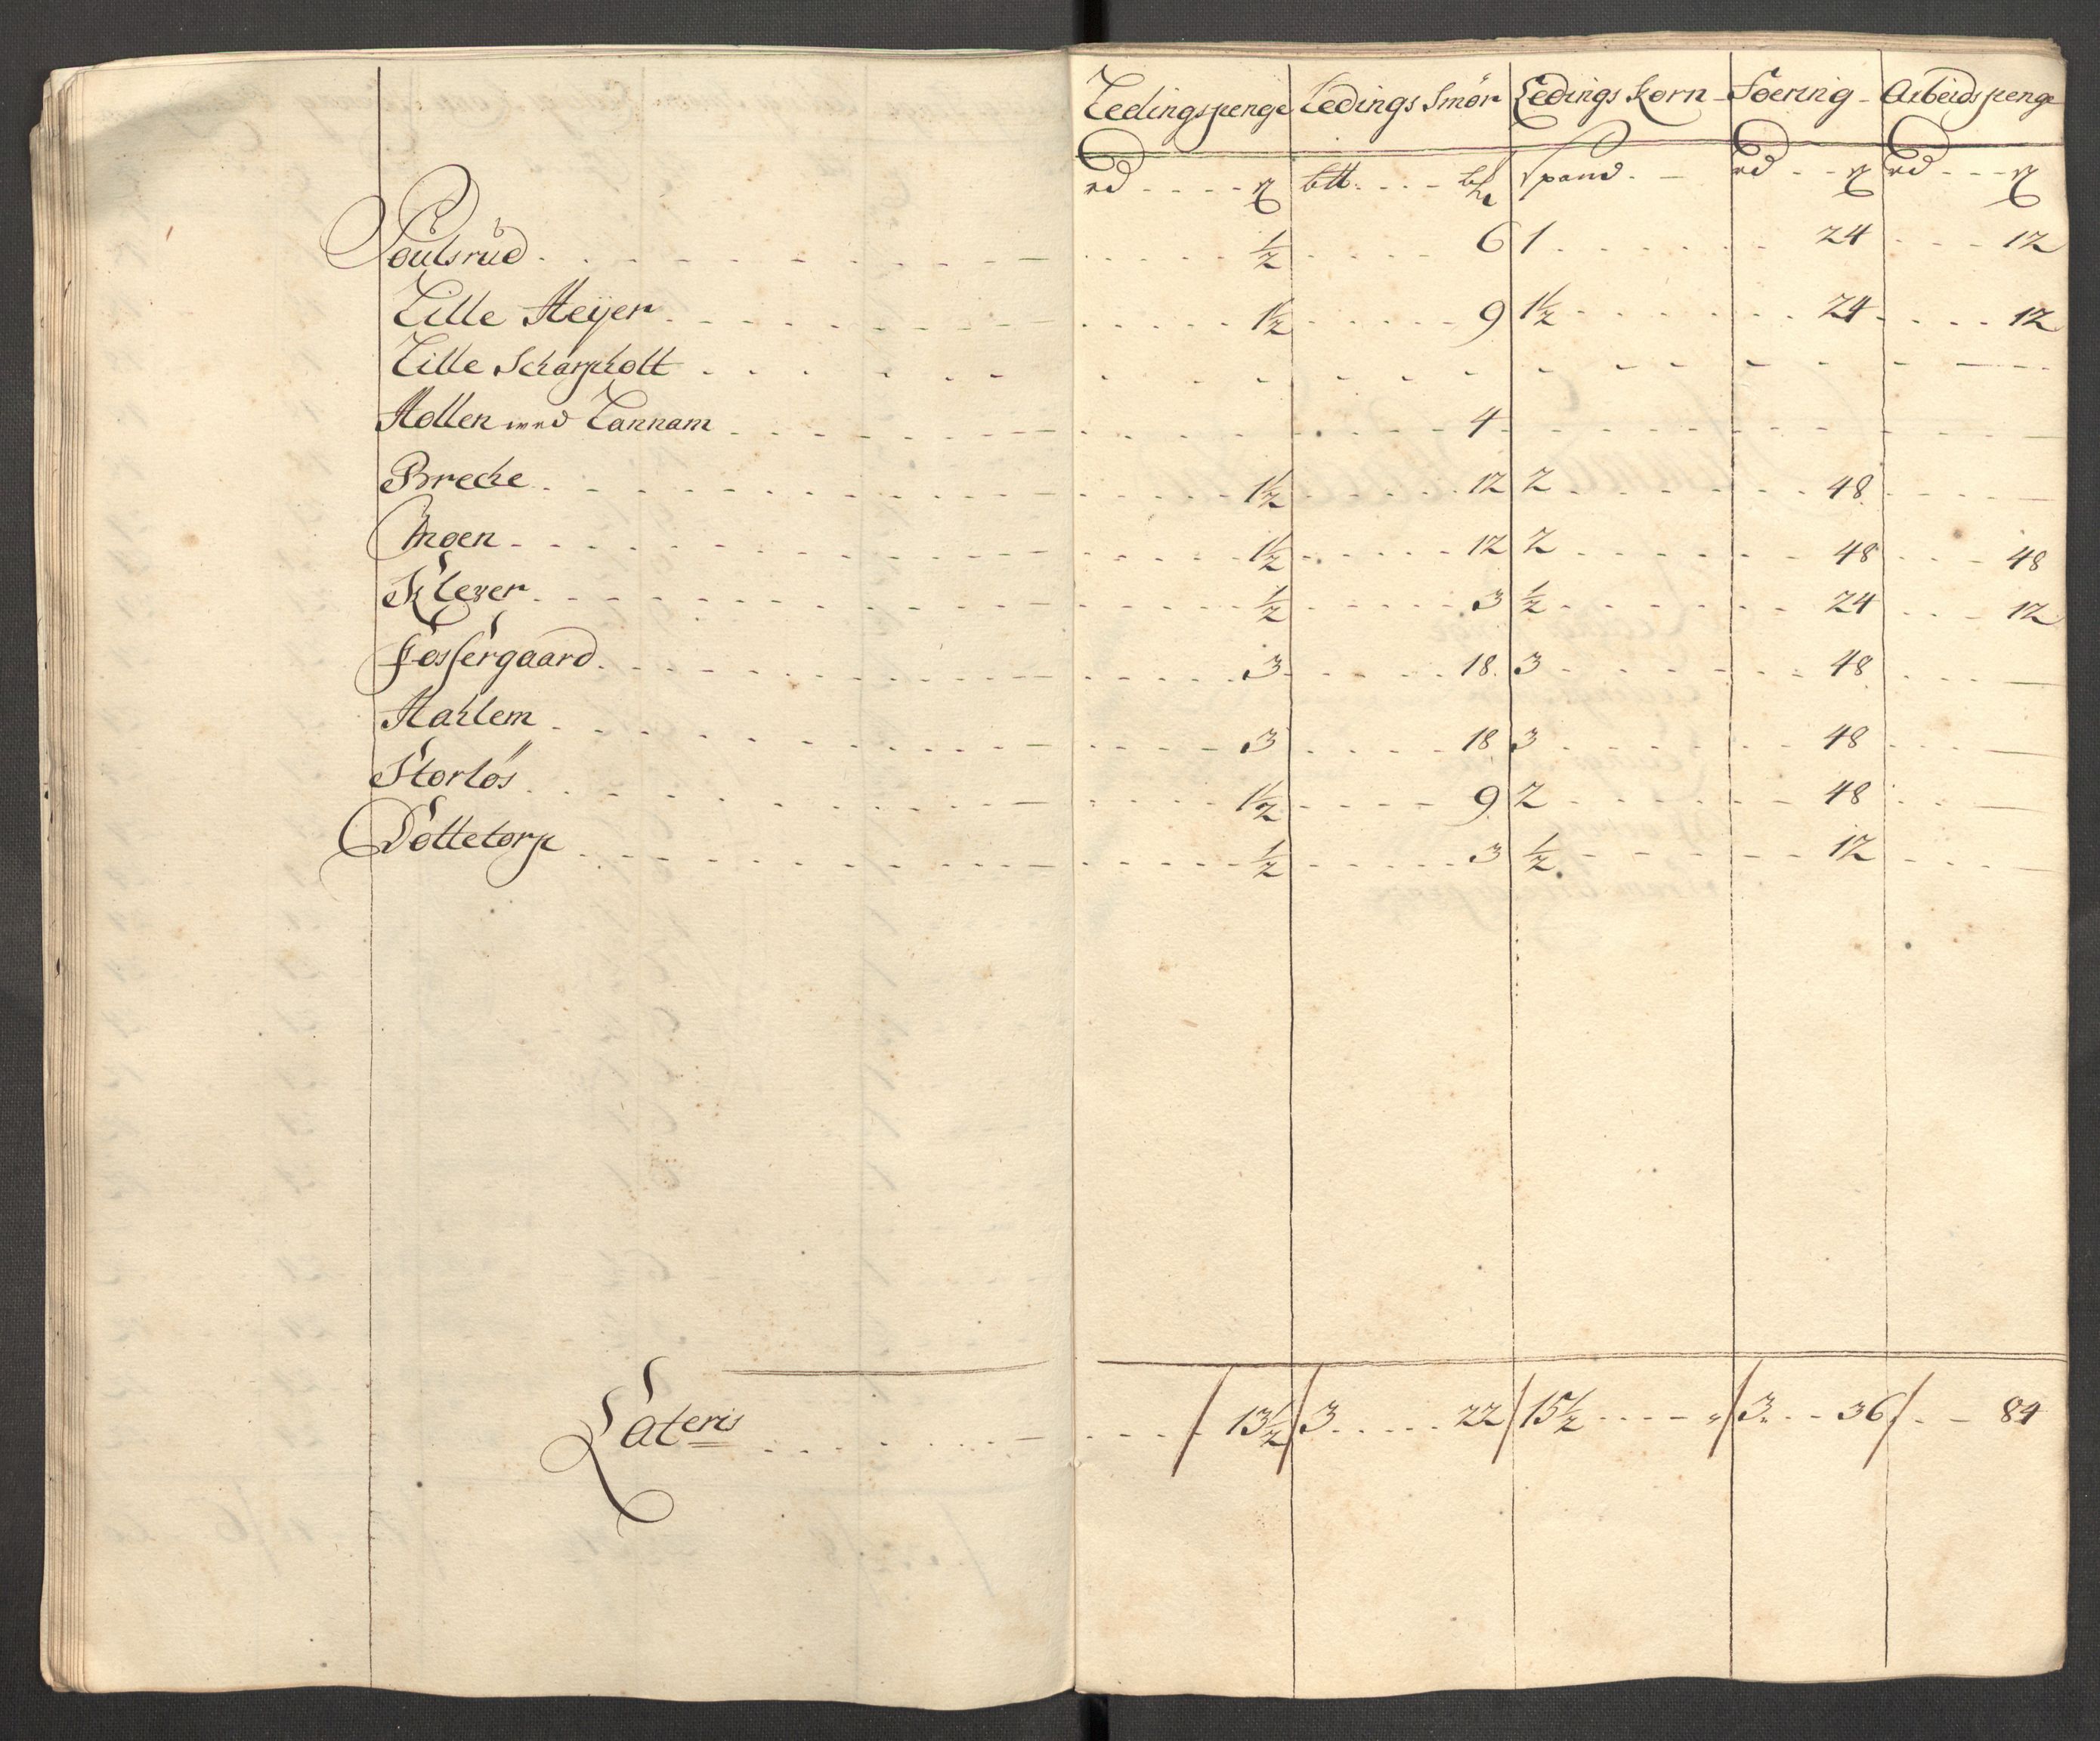 Ledingspenge Ledings Smör Ledings Korn Foering Arbeidspenge
rd ß btt ß Spand rd ß rd ß
Poulsrud ½ 6 1 24 12
Lille Heÿer 1½ 9 1½ 24 12
Lille Scharpholt
Hollen med Lannam 4
Breche 1½ 12 2 48
Moen 1½ 12 2 48 48
Klever ½ 3 ½ 24 12
Fossergaard 3 18 3 48
Hahlem 3 18 3 48
Storlös 1½ 9 2 48
Dottetorp ½ 3 ½ 12
Lateris 13½ 3 22 15½ 3 36 84